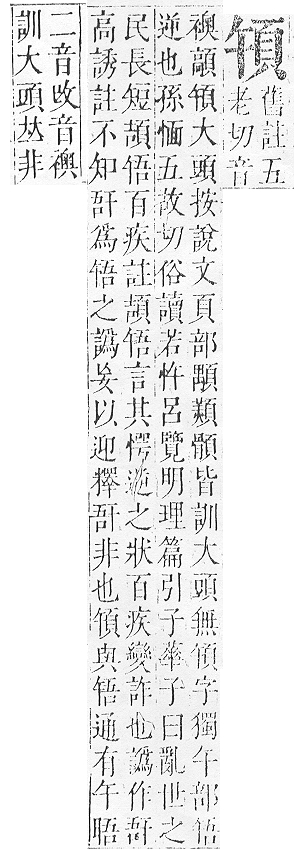 舊註五
老切音
襖顤大頭按說文頁部顝皆訓大頭無字獨午部啎
逆也孫愐五故切俗讀若忤呂覽明理篇引子華子曰亂世之
民長短頡啎百疾註頡啎言其愕逆之狀百疾變詐也譌作
高誘註不知爲啎之譌妄以迎釋非也與啎通有午晤
二音改音襖
訓大頭𠀤非